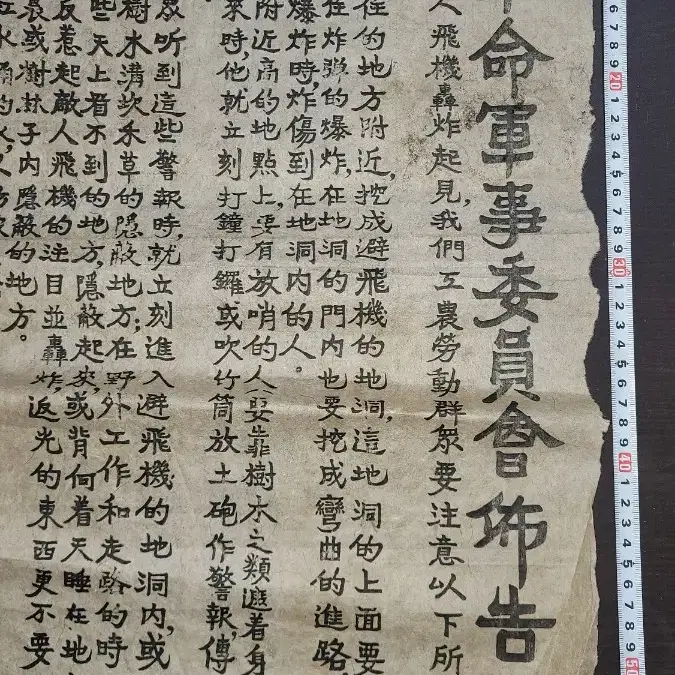 命軍事委員會佈告
人飛機轟炸起見,我們工農勞動群衆要注意以下所
住的地方附近,挖成避飛機的地洞,這地洞的上面要
住炸彈的爆炸,在地洞的門內也要挖成彎曲的進路,
爆炸時,炸傷到在地洞內的人。
附近高的地點上,要有放哨的人(要靠樹木之類遮着身
來時,他就立刻打鐘打鑼或吹竹筒放土砲作警報,傳
。
眾听到這些警報時,就立刻進入避飛機的地洞內,或
樹木溝坎禾草的隱蔽地方;在野外工作和走路的時
些天上看不到的地方,隱蔽起來,或背向着天睡在地
反惹起敵人飛機的注目並轟炸,返光的東西更不要
或樹林子內隱蔽的地方。
水桶的水,人
6 7 8 9 20 1 2 3 4 5 6 7 8 9 30 1 2 3 4 5 6 7 8 9 40 1 2 3 4 5 6 7 8 9 50